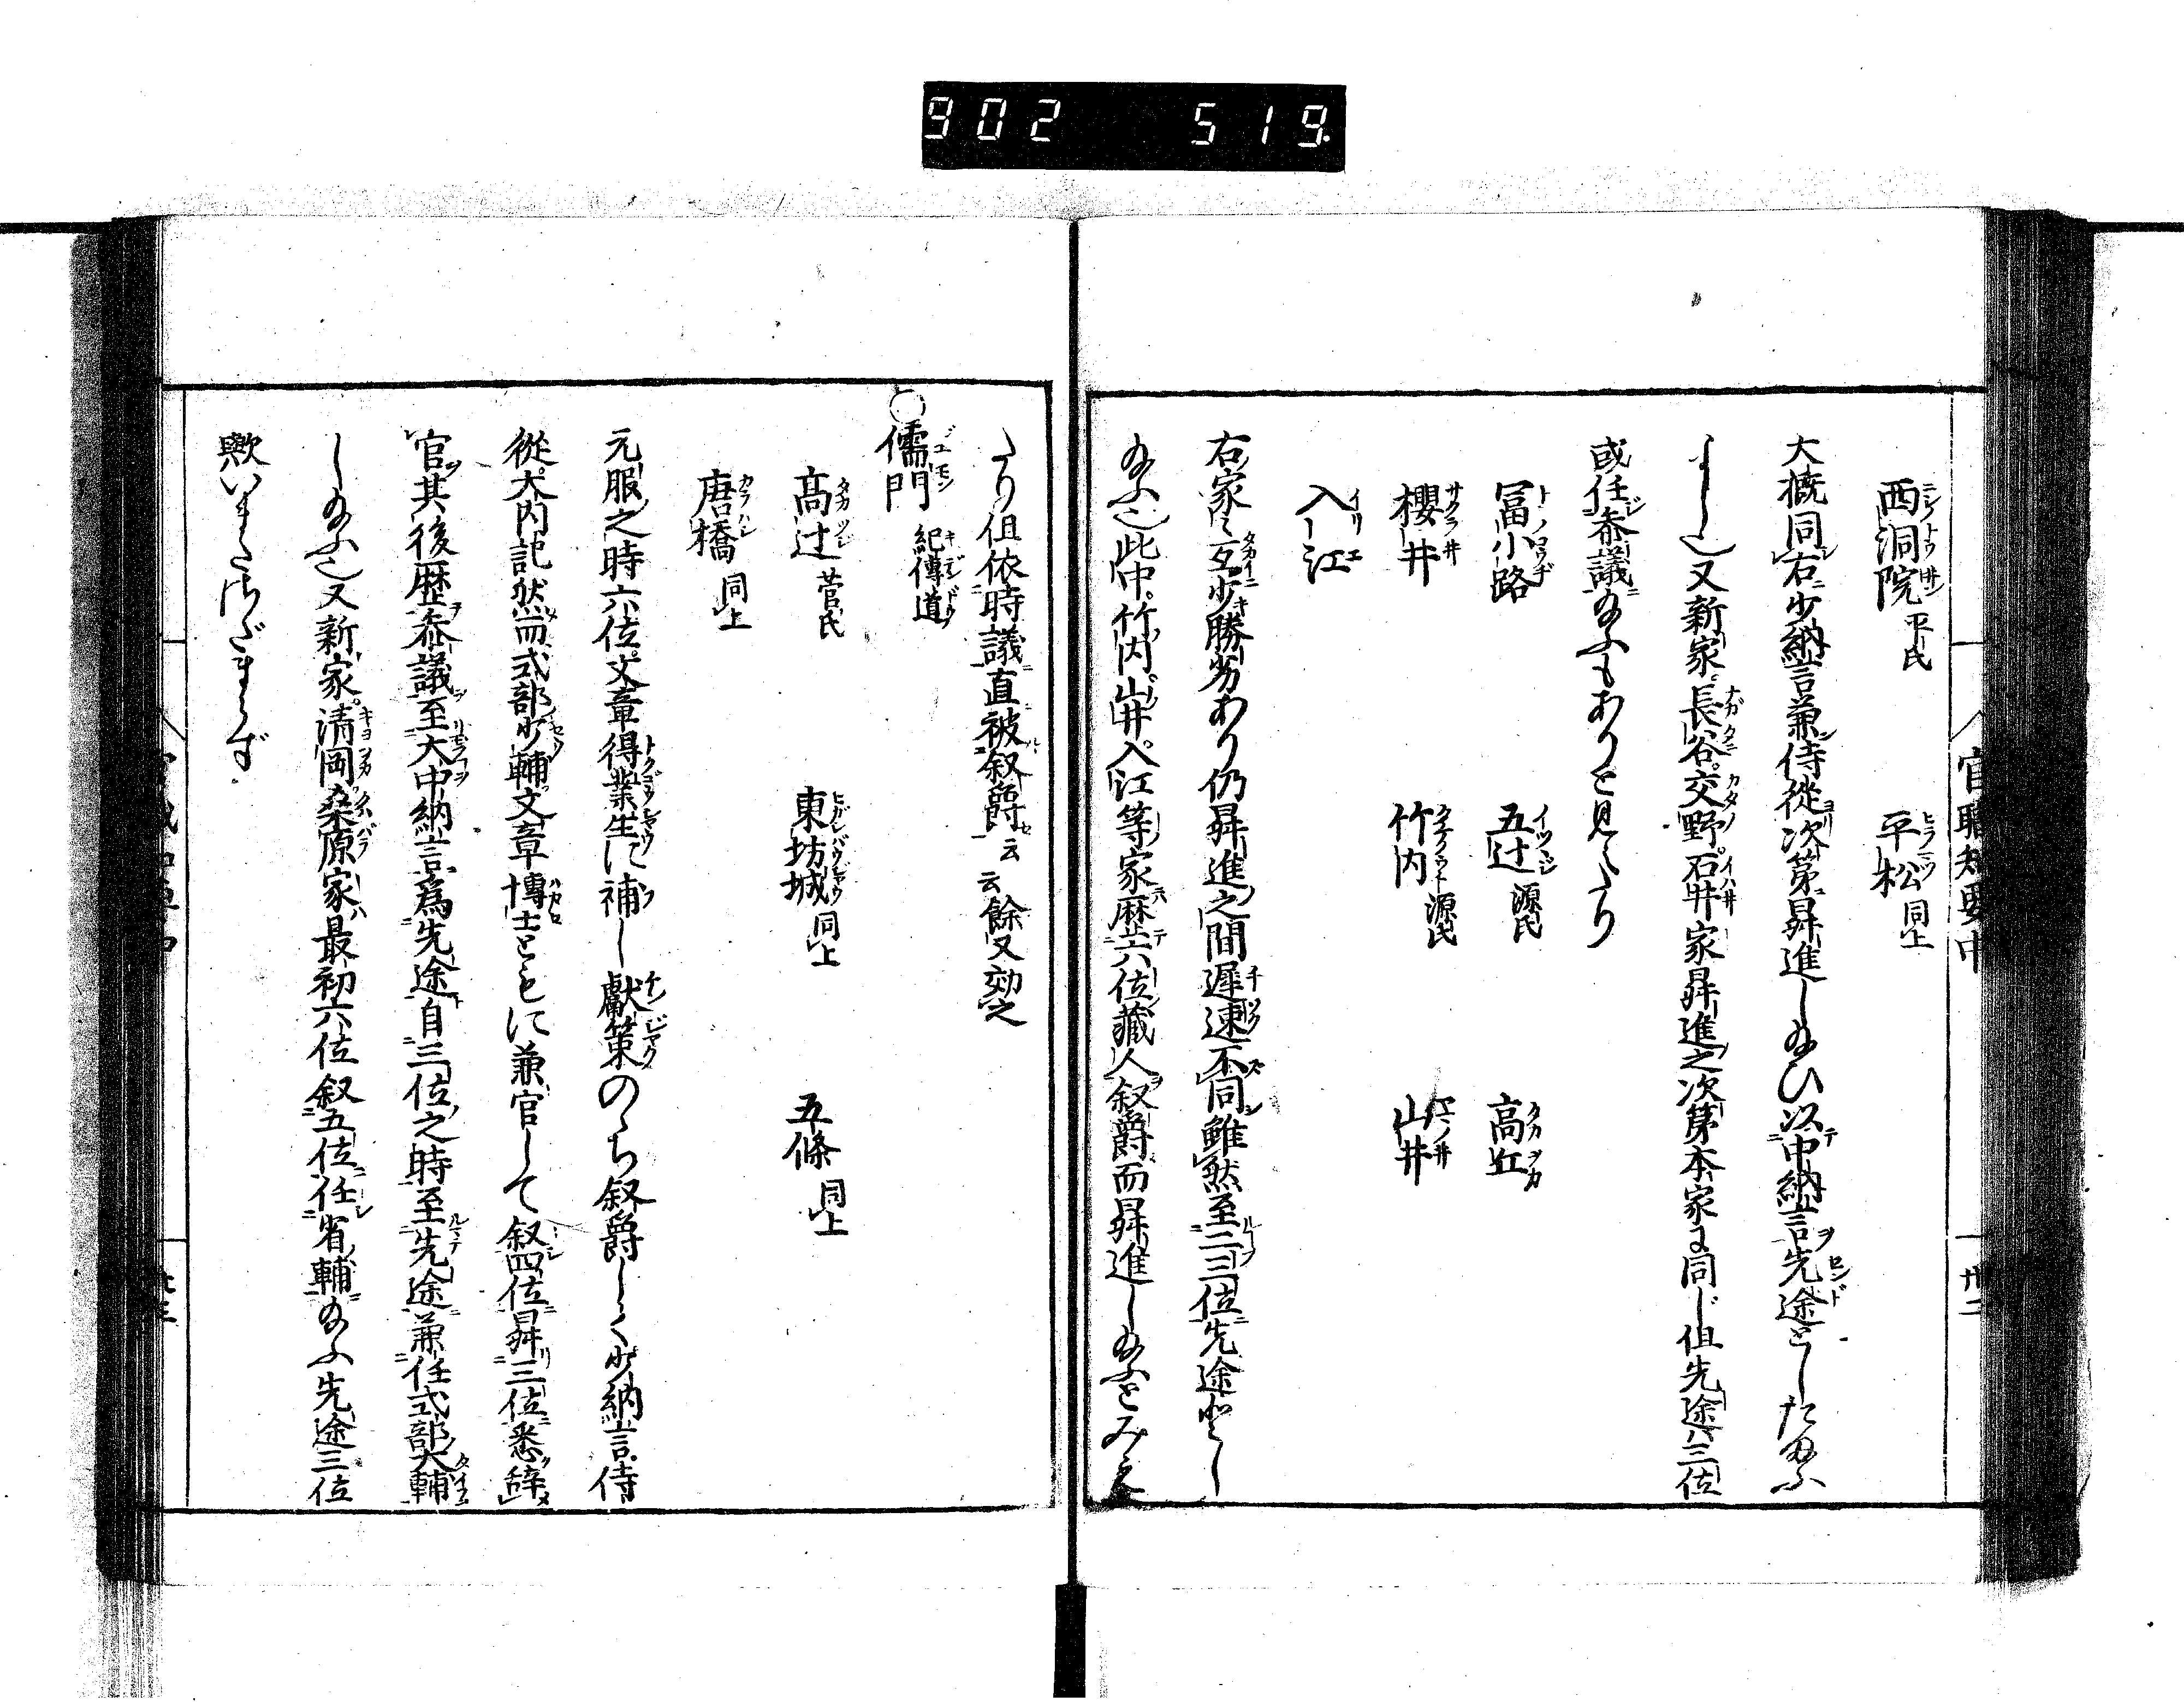 902 519
官職知要中
卅二
西洞院 平氏 平松 同上
大概同右少納言兼侍從次第昇進し給ひ以中納言先途としたまふ
よし也又新家長谷交野石井家昇進之次第本家に同じ但先途ハ三位
或任叅議給ふもありと見えたり
冨小路 五辻 源氏 高丘
櫻井 竹内 源氏 山井
入江
右家々互少勝劣あり仍昇進之間遲速不同雖然至二三位先途とし
給ふ也此中竹内山井入江等家歴六位藏人叙爵而昇進し給ふとみえ
たり但依時議直被叙爵云云餘又効之
○儒門 紀傳道
髙辻 菅氏 東坊城 同上 五條 同上
唐橋 同上
元服之時六位文章得業生に補し獻策のち叙爵しく少納言侍
從大内記然而式部少輔文章博士ともに兼官して叙四位昇三位悉辞
官其後歴叅議至大中納言爲先途自三位之時至先途兼任式部大輔
し給ふ也又新家清岡桑原家ハ最初六位叙五位任省輔給ふ先途三位
歟いまたさだまらず